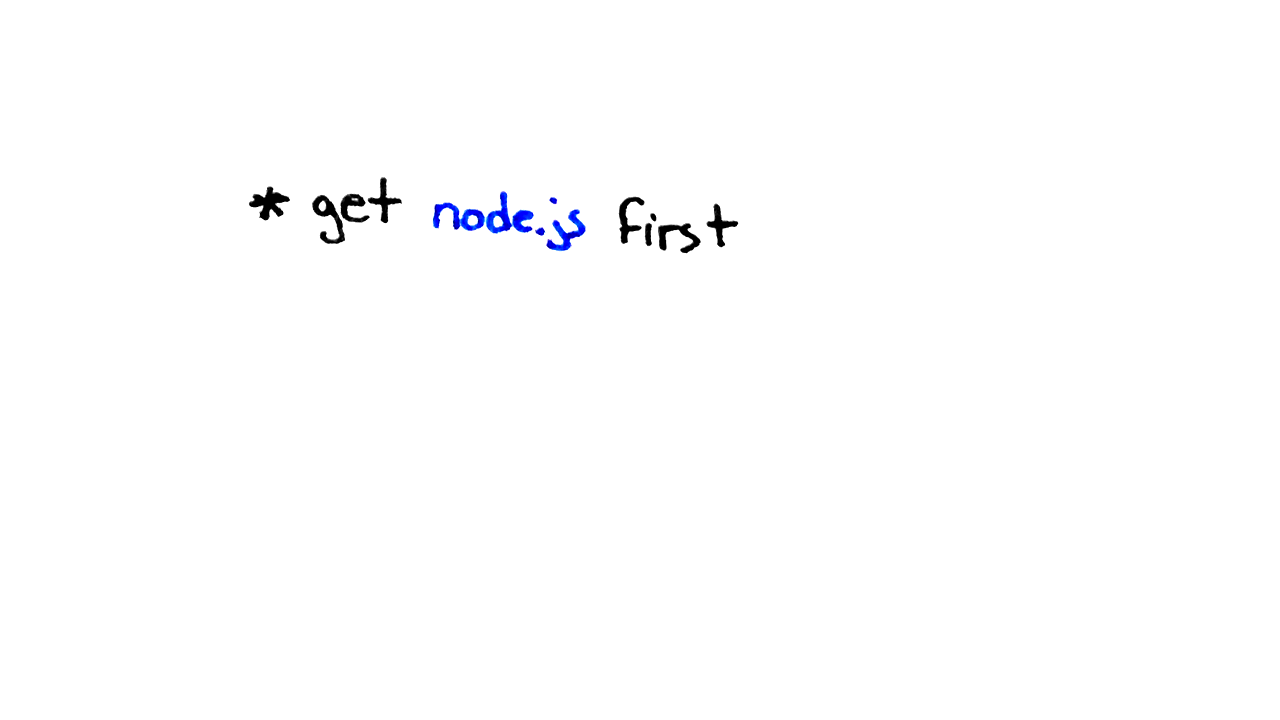 * get node.js first